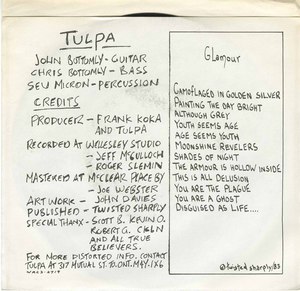 TULPA
JOHN BOTTOMLY - GUITAR
CHRIS BOTTOMLY - BASS
SEV MICRON - PERCUSSION
CREDITS
PRODUCER - FRANK KOKA
AND TULPA
RECORDED AT WELLESLEY STUDIO
- JEFF McCULLOCH
- ROGER SLEMIN
MASTERED AT McCLEAR PLACE BY
- JOE WEBSTER
ART WORK - JOHN DAVIES
PUBLISHED - TWISTED SHARPLY
SPECIAL THANX - SCOTT B. KEVIN O.
ROBERT G. CKLN
AND ALL TRUE
BELIEVERS.
FOR MORE DISTORTED INFO. CONTACT
TULPA AT 317 MUTUAL ST. TO. ONT. M4Y. 1X6
Glamour
CAMOFLAGED IN GOLDEN SILVER
PAINTING THE DAY BRIGHT
ALTHOUGH GREY
YOUTH SEEMS AGE
AGE SEEMS YOUTH
MOONSHINE REVELERS
SHADES OF NIGHT
THE ARMOUR IS HOLLOW INSIDE
THIS IS ALL DELUSION
YOU ARE THE PLAGUE
YOU ARE A GHOST
DISGUISED AS LIFE....
© twisted sharply/83